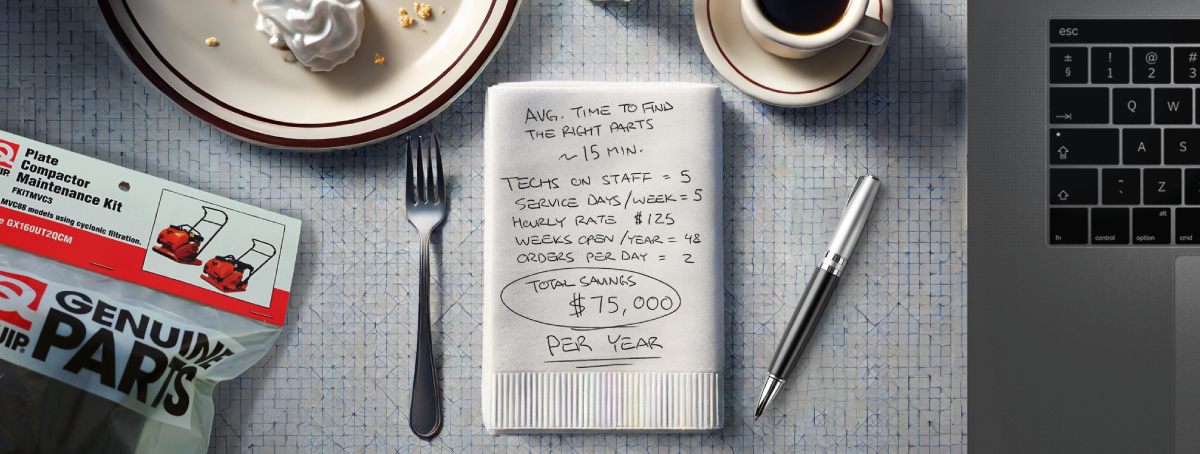 AVG. TIME TO FIND
THE RIGHT PARTS
~ 15 MIN.
TECHS ON STAFF = 5
SERVICE DAYS/WEEK = 5
HOURLY RATE $125
WEEKS OPEN/YEAR = 48
ORDERS PER DAY = 2
TOTAL SAVINGS
$75,000
PER YEAR
Plate
Compactor
Maintenance Kit
FKITMVC3
MVC88 models using cyclonic filtration.
GX160UT2QCM
GENUINE
PARTS
esc
± ! @ #
§ 1 2 3
Q W
A S
~ Z
`
alt
fn control option cmd